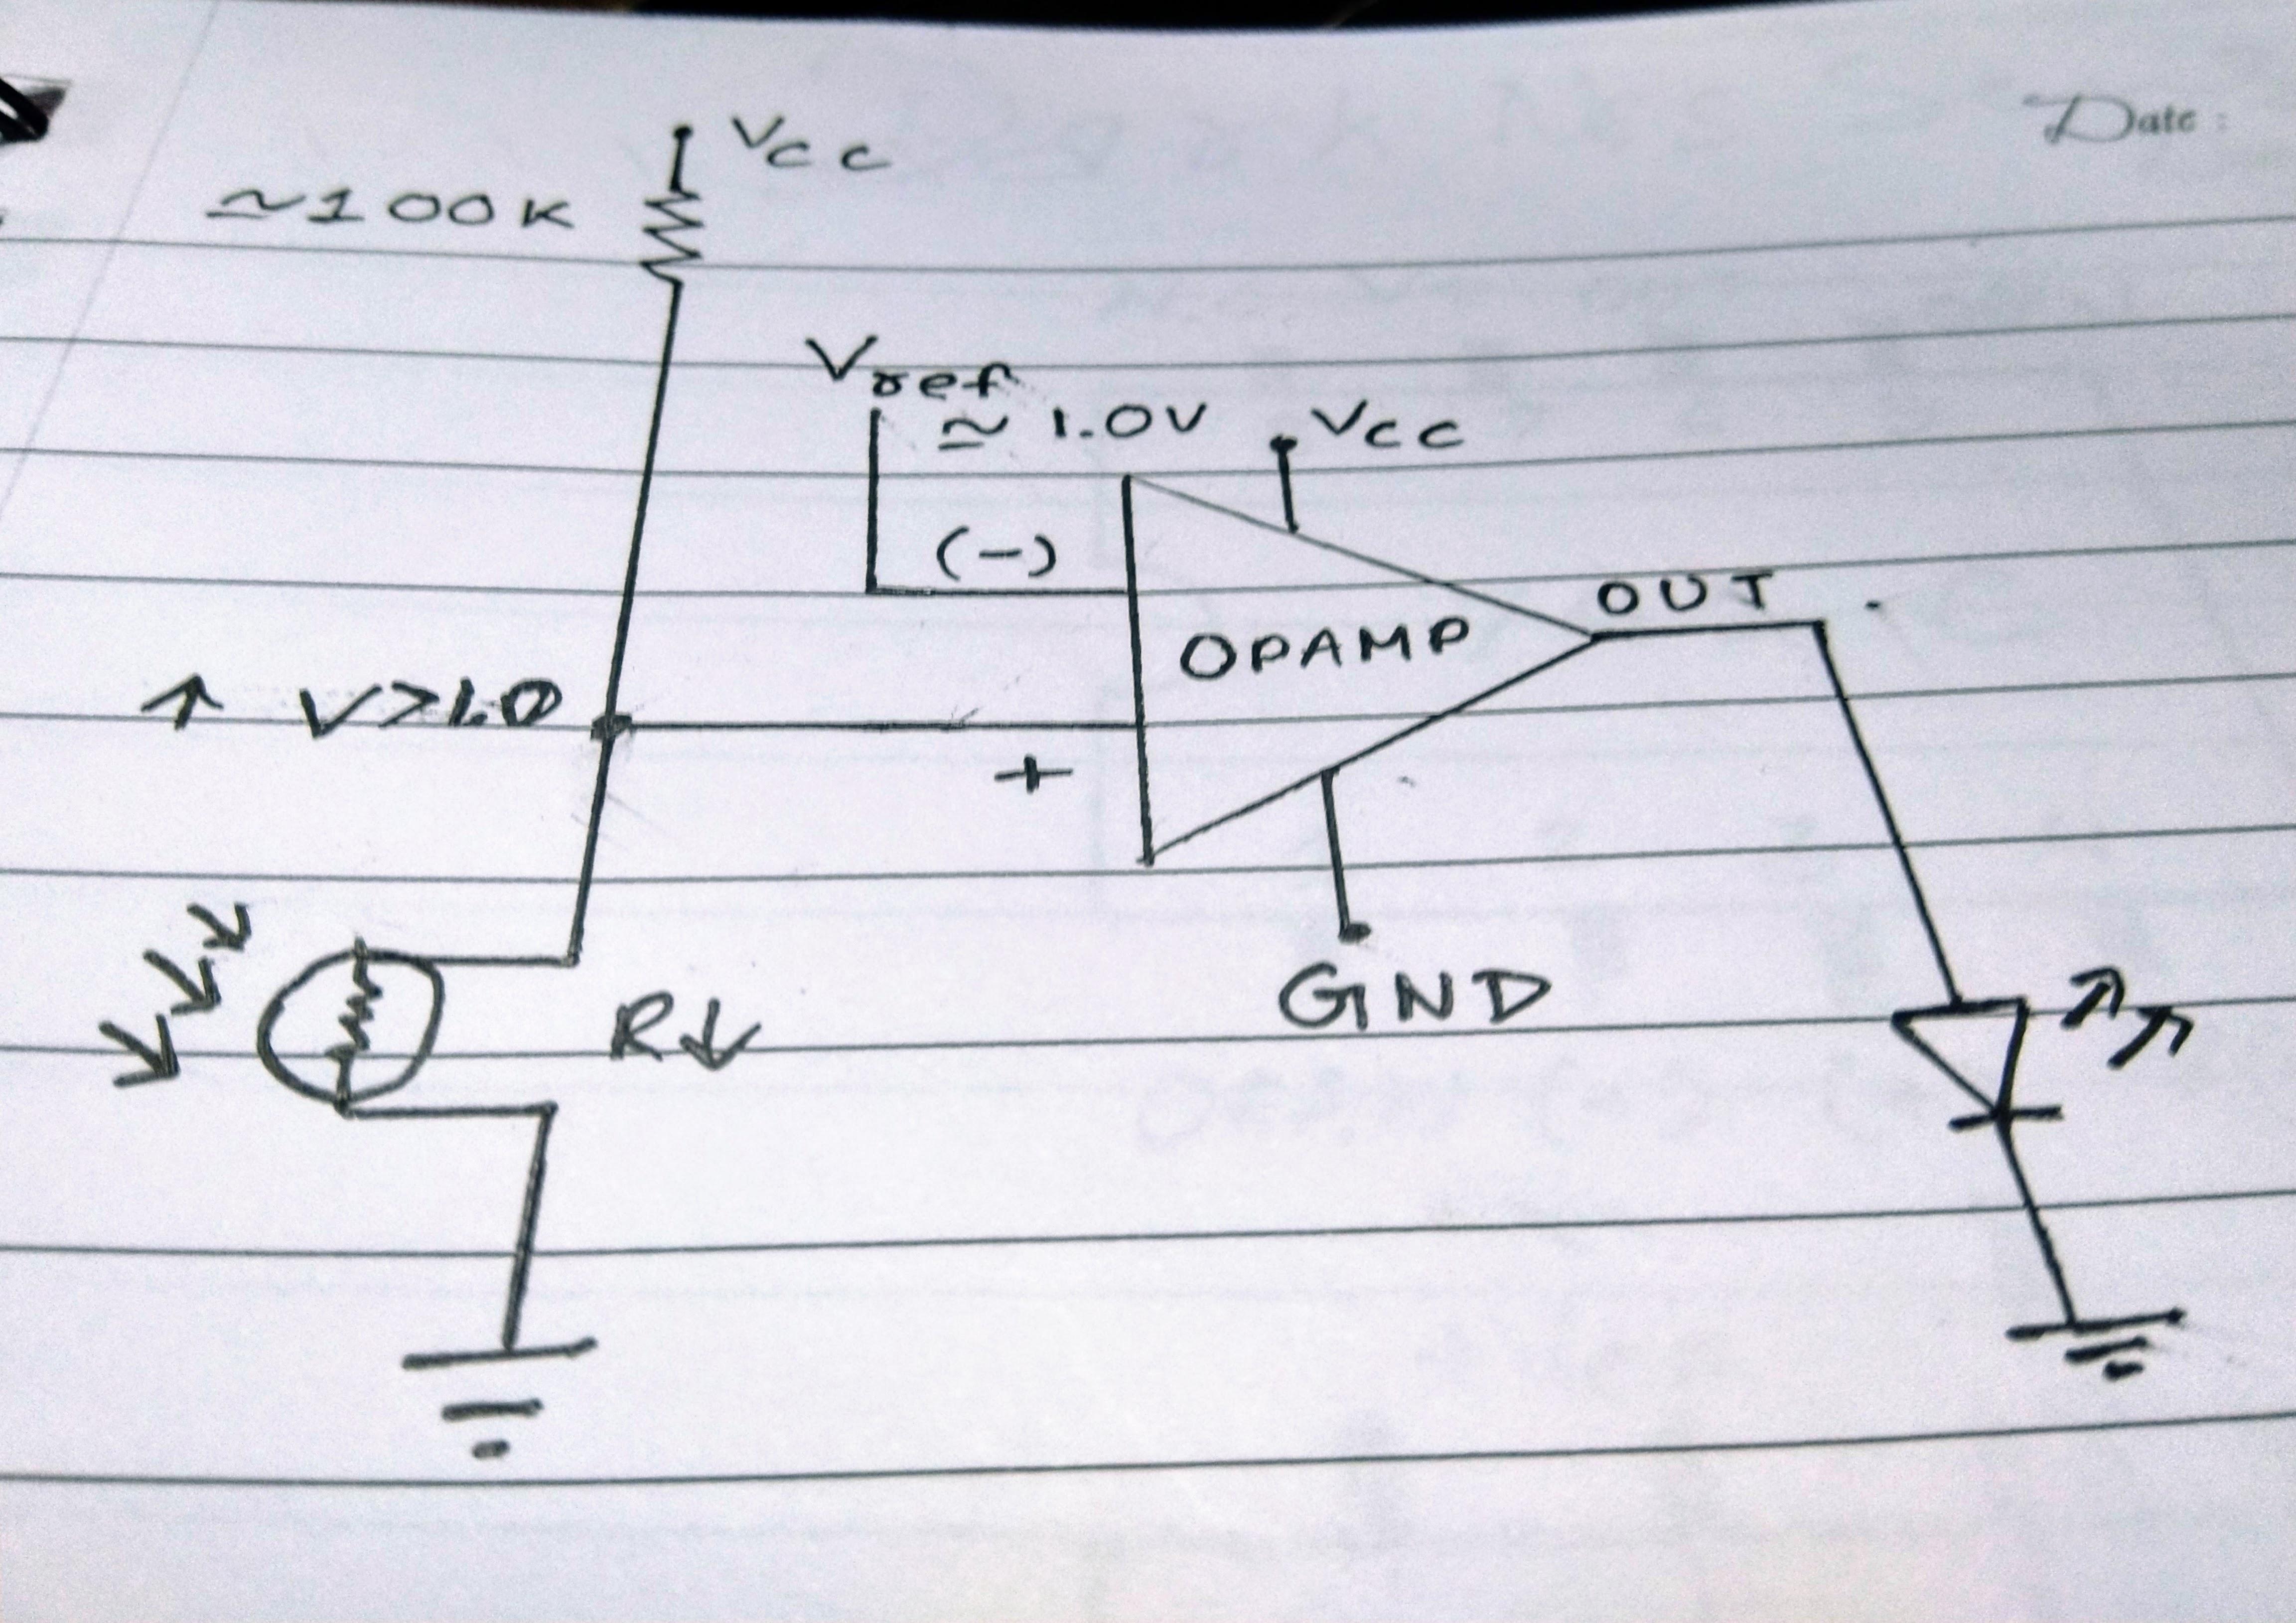 Date :
Vcc
≃100K
Vref
≃ 1.0V
Vcc
(-)
OUT
OPAMP
↑ V>1.0
+
R↓
GND